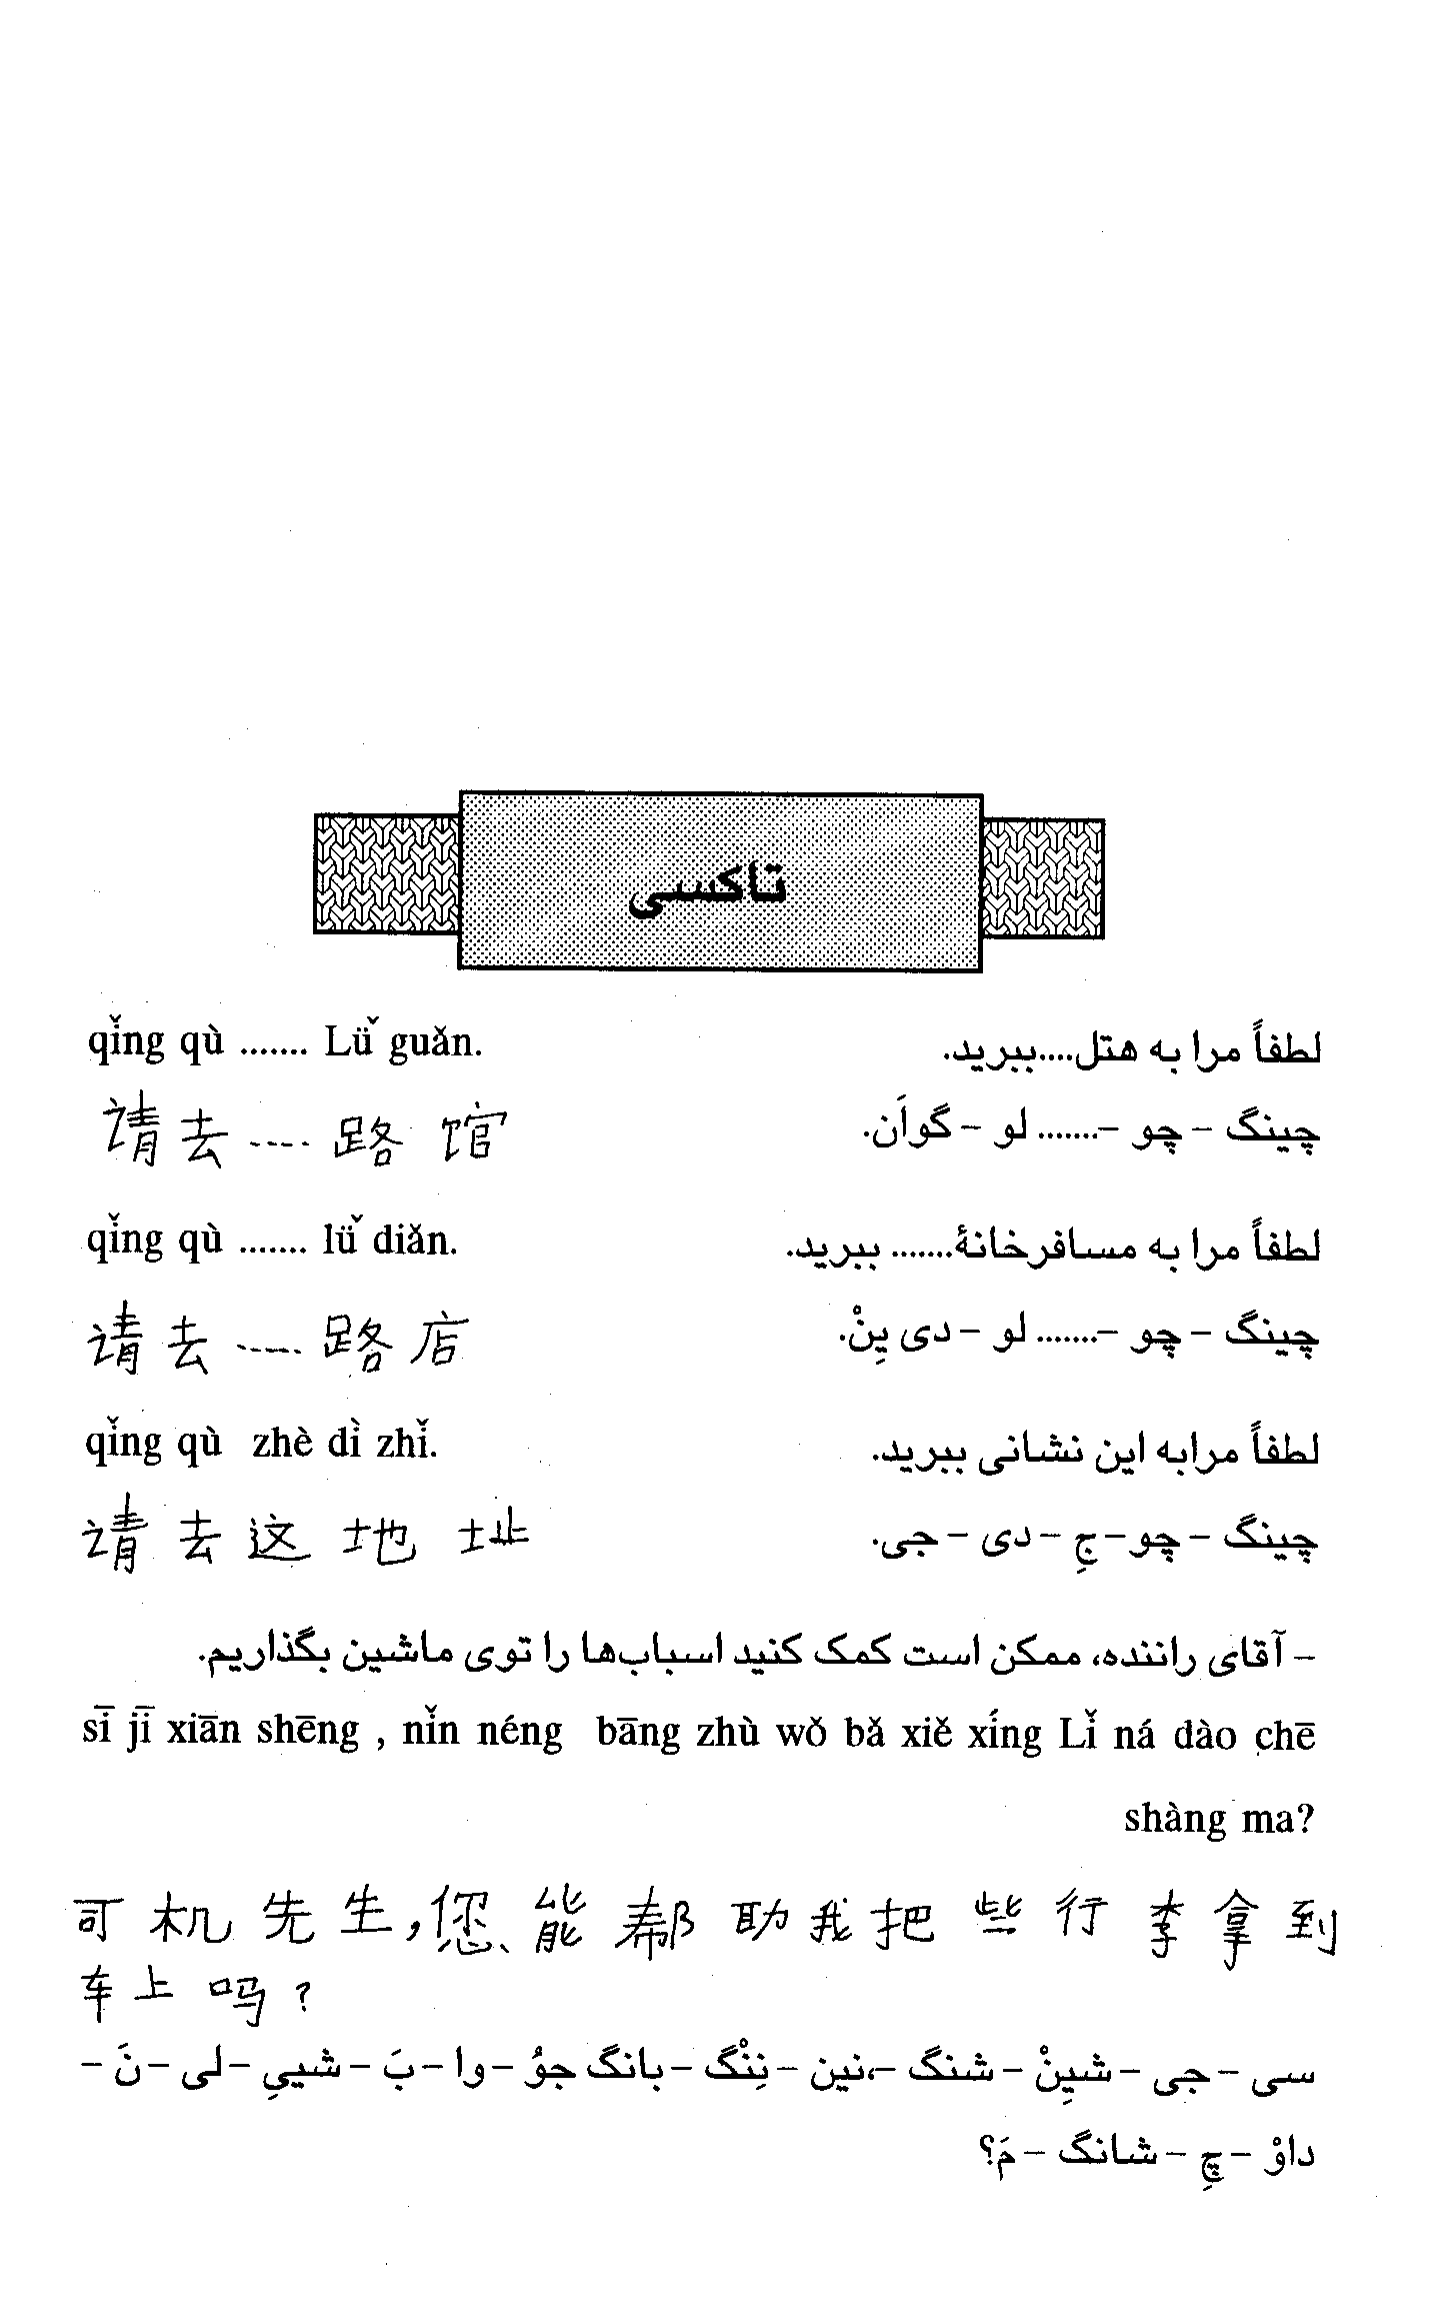 تاکسی
لطفاً مرا به هتل....ببرید.
qǐng qù ....... Lǚ guǎn.
چینگ - چو -....... لو - گوآن.
请去 ---- 路馆
لطفاً مرا به مسافرخانهٔ....... ببرید.
qǐng qù ....... lǚ diǎn.
چینگ - چو -....... لو - دی یِنْ.
请去 ---- 路店
لطفاً مرابه این نشانی ببرید.
qǐng qù zhè dì zhǐ.
چینگ - چو-جِ - دی - جی.
请去这地址
- آقای راننده، ممکن است کمک کنید اسباب‌ها را توی ماشین بگذاریم.
sī jī xiān shēng , nǐn néng bāng zhù wǒ bǎ xiě xíng Lǐ ná dào chē
shàng ma?
司机先生,您能帮助我把些行李拿到
车上吗?
سی - جی - شیِنْ - شنگ -،نین - نِنْگ - بانگ جوُ - وا - بَ - شییِ - لی - نَ -
داوْ - چِ - شانگ - مَ؟